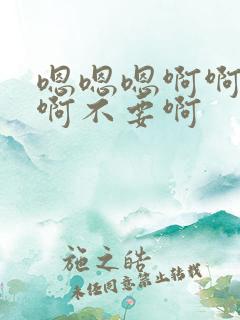 嗯嗯嗯啊啊
啊不要啊
施之皓
未经同意禁止转载